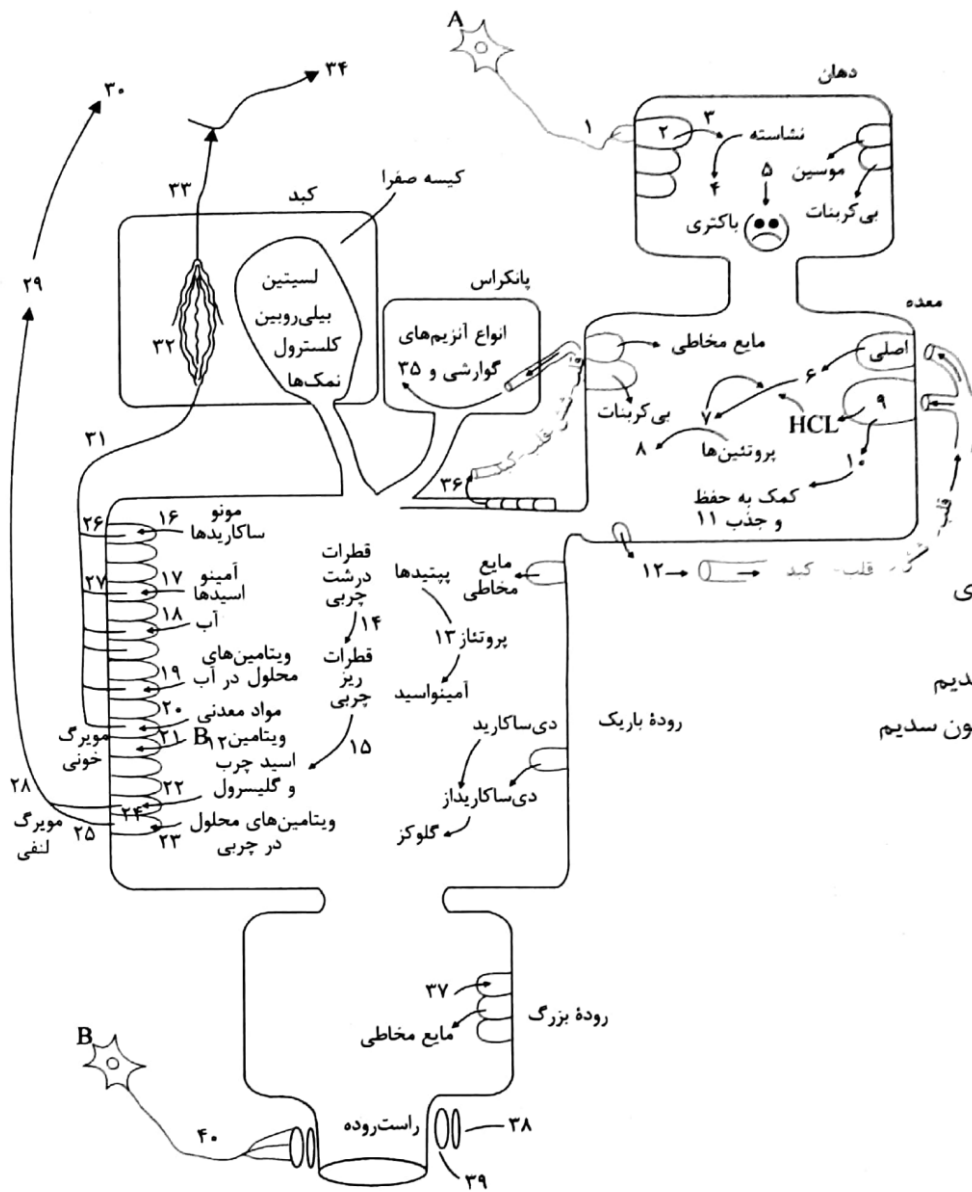 A
دهان
۱
۲
۳
نشاسته
۴
۵
باکتری
موسین
بی‌کربنات
۳۰
۳۴
۳۳
کبد
کیسه صفرا
۲۹
۳۲
لسیتین
بیلی‌روبین
کلسترول
نمک‌ها
پانکراس
انواع آنزیم‌های
گوارشی و ۳۵
معده
مایع مخاطی
بی‌کربنات
اصلی
۶
۷
۸
پروتئین‌ها
HCL
۹
۱۰
کمک به حفظ
و جذب ۱۱
قلب
کبد
۳۶
قلب
کبد
قلب
۱۲
۳۱
۲۶
۱۶
مونو
ساکاریدها
۲۷
۱۷
آمینو
اسیدها
۱۸
آب
۱۹
ویتامین‌های
محلول در آب
۲۰
مواد معدنی
۲۱
ویتامین B۱۲
مویرگ
خونی
اسید چرب
و گلیسرول
۲۲
۲۴
۲۸
۲۵
مویرگ
لنفی
۲۳
ویتامین‌های محلول
در چربی
قطرات
درشت
چربی
۱۴
قطرات
ریز
چربی
۱۵
پپتیدها
پروتئاز ۱۳
آمینواسید
مایع
مخاطی
دی‌ساکارید
دی‌ساکاریداز
گلوکز
رودهٔ باریک
ی
دیم
ون سدیم
۳۷
مایع مخاطی
رودهٔ بزرگ
B
۴۰
راست‌روده
۳۸
۳۹